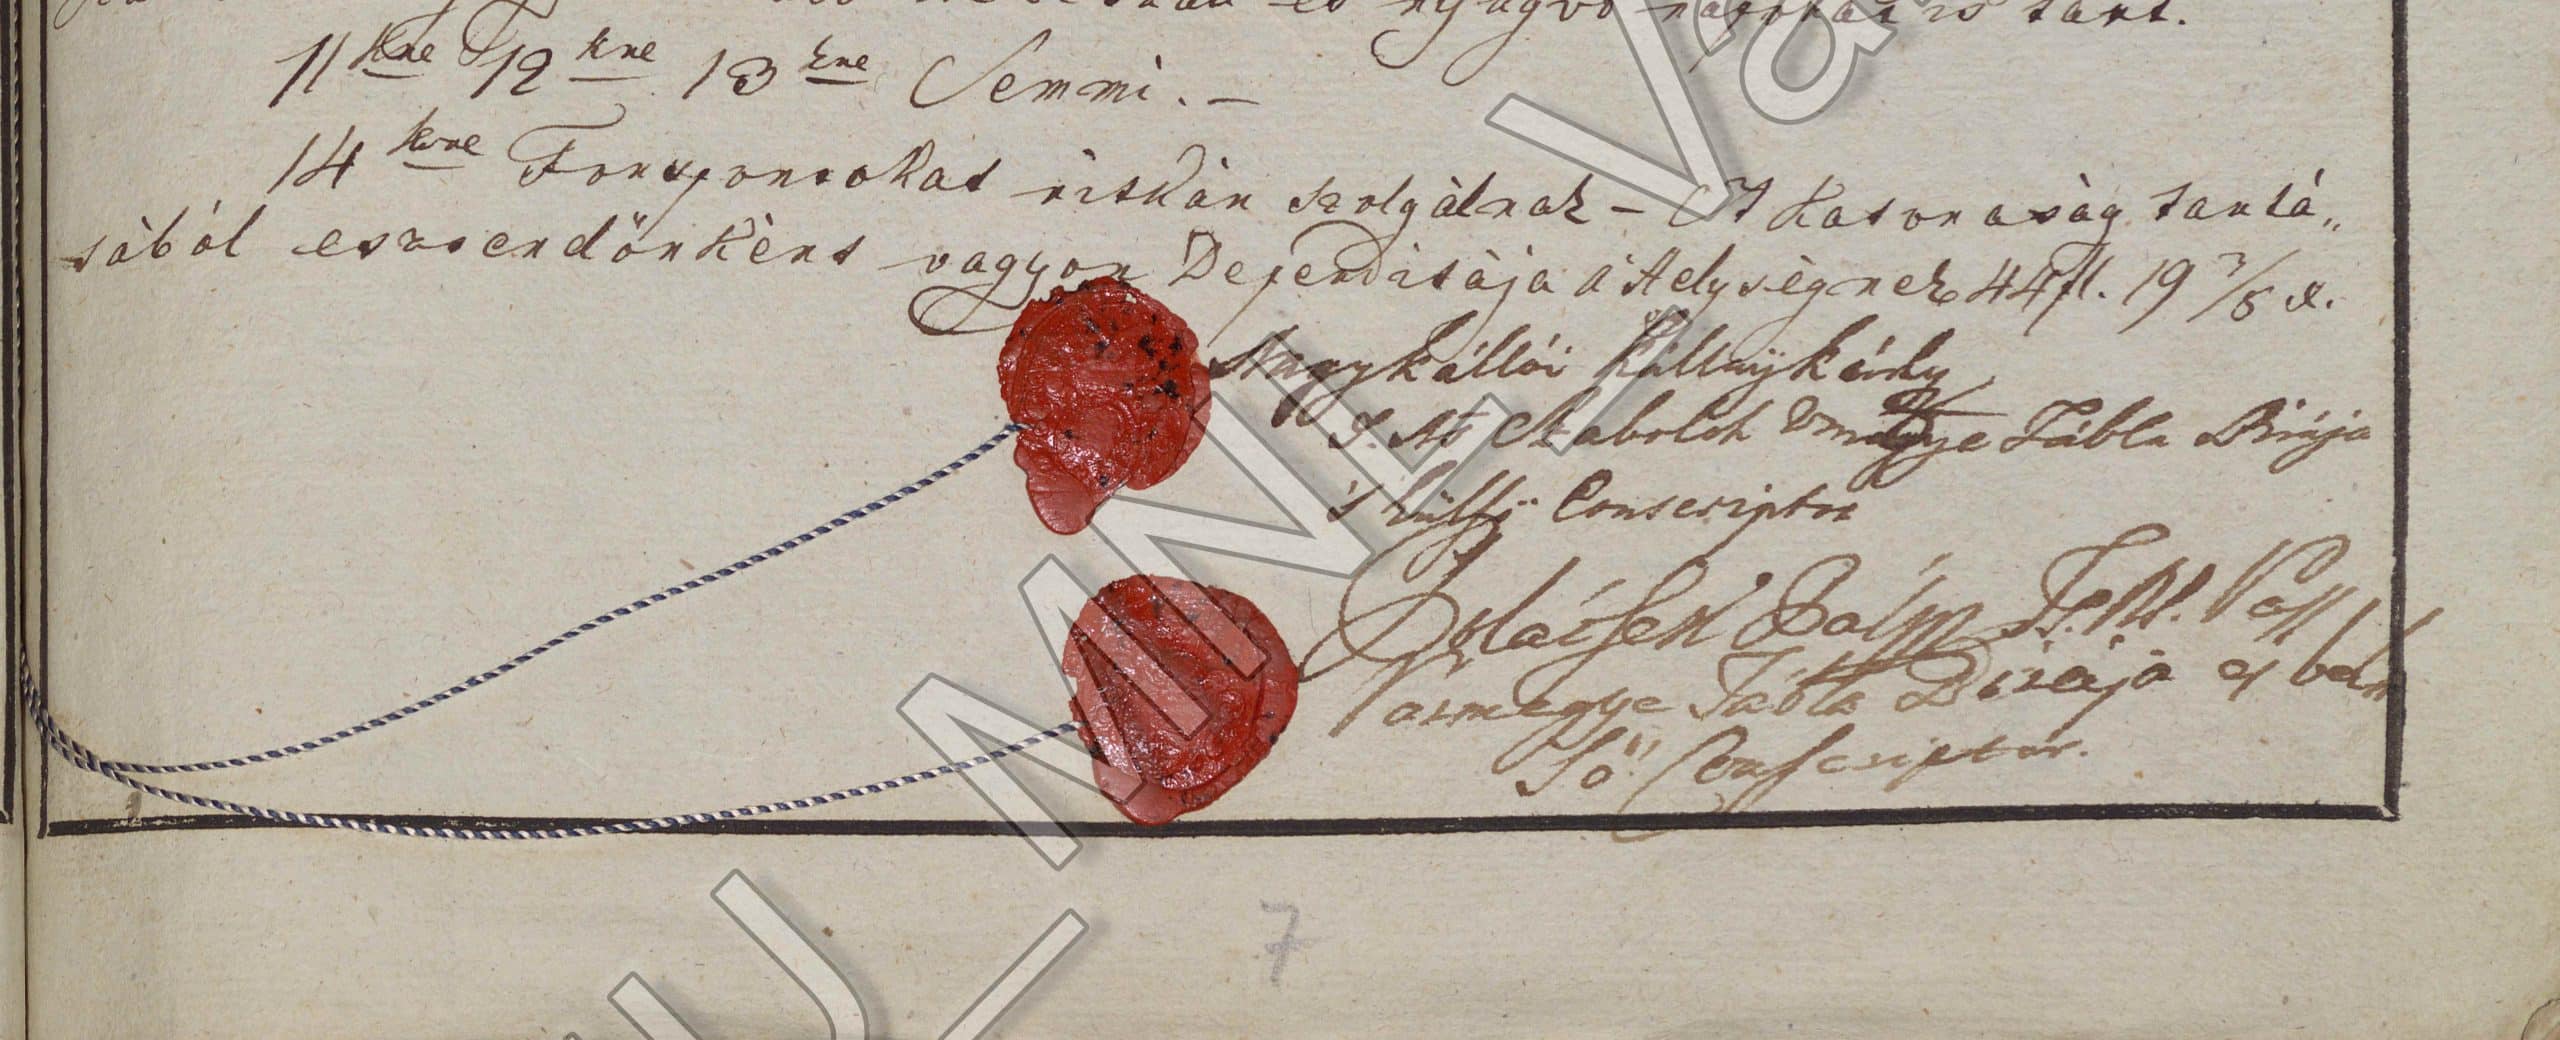 és nyugvó is tart.
11kre 12kre 13kre Semmi. –
14kre Forspontokat ritkán szolgálnak – A Katonaság tartá„
sából esztendőnként vagyon Deperditája a Helységnek 44 fl. 19 7/8 x.
Nagykállói Kállaÿ Károly
T. N. Szabolch Vmegye Tábla Birája
's külső Conscriptor
Bálint T. N. Pest
Vármegye Tábla Birája és bel
ső Conscriptor.
7
HU_MNL_Va